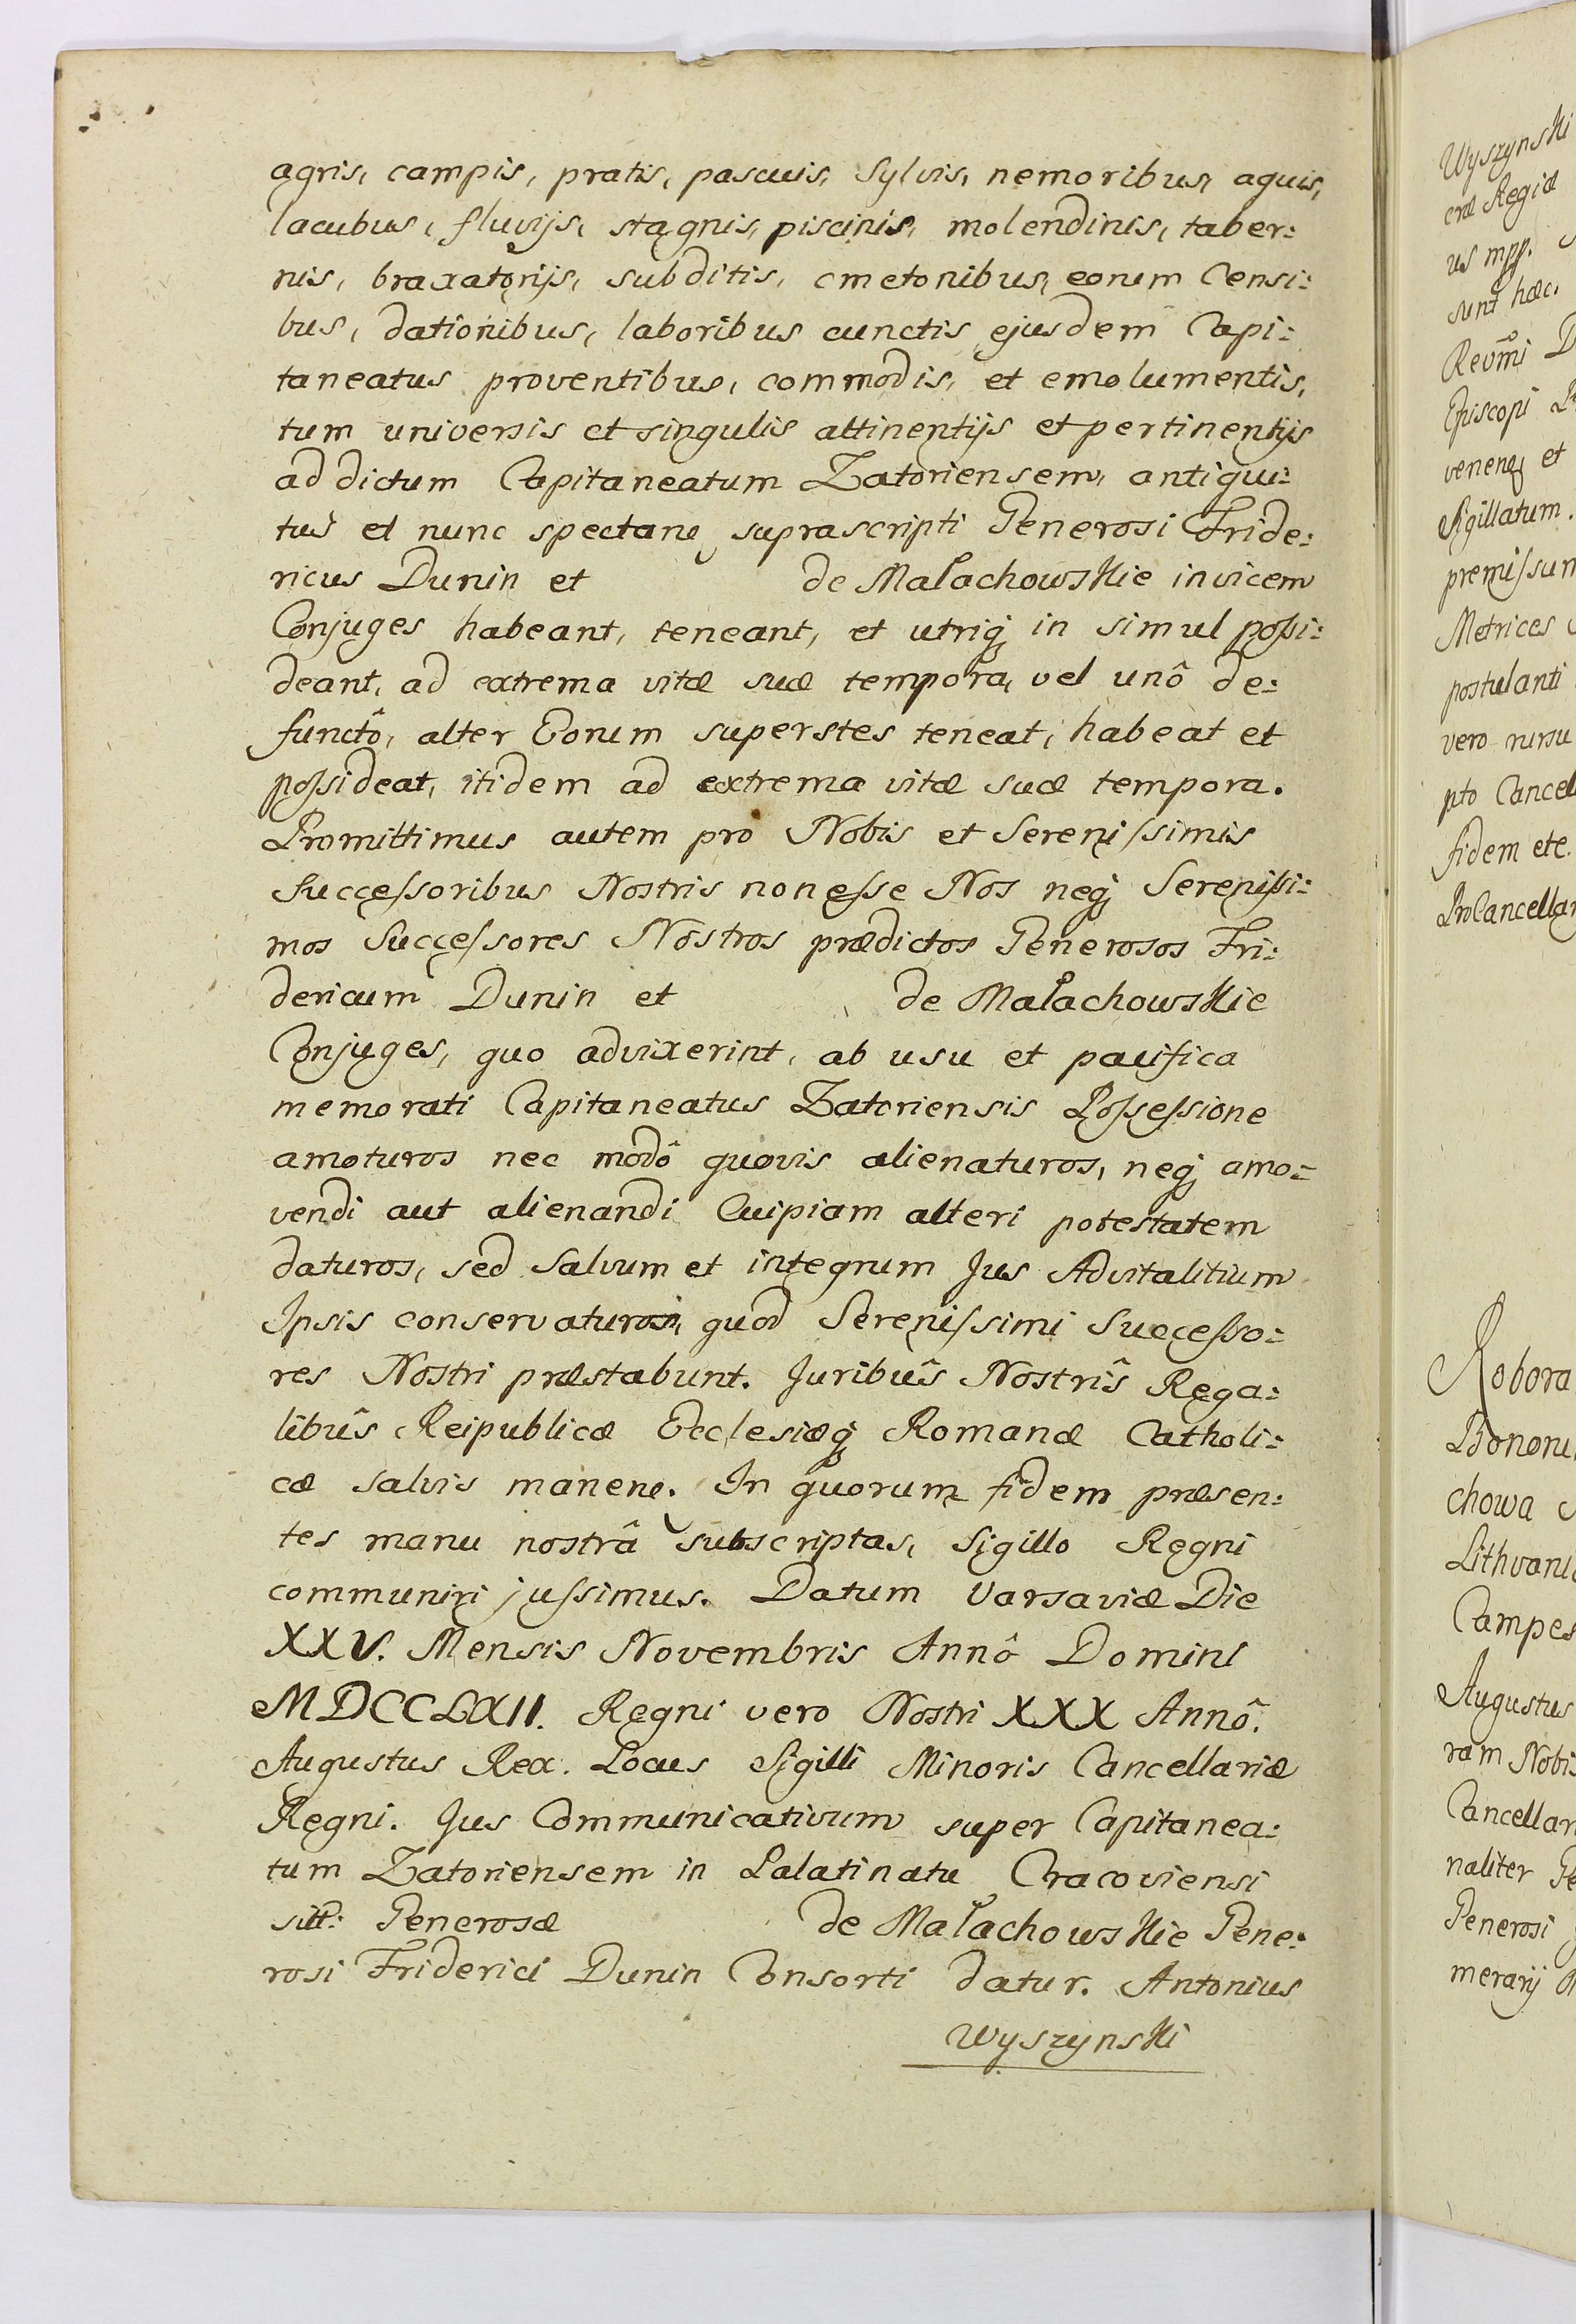 agris, campis, pratis, pascuis, Sylvis, nemoribus, aquis,
lacubus, fluvijs, stagnis, piscinis, molendinis, taber:
nis, braxatorijs, subditis, cmetonibus, eorum Censi:
bus, dationibus, laboribus cunctis, ejusdem Capi:
taneatus proventibus, commodis, et emolumentis,
tum universis et singulis attinentijs et pertinentijs
ad dictum Capitaneatum Zatoriensem, antiqui:
tus et nunc spectane, suprascripti Generosi Fride:
ricus Dunin et de Małachowskie invicem
Conjuges habeant, teneant, et utriq in simul possi:
deant, ad extrema vitæ suæ tempora, vel unô de:
functô, alter Eorum superstes teneat, habeat et
possideat, itidem ad extrema vitæ suæ tempora.
Promittimus autem pro Nobis et Serenissimis
Successoribus Nostris non esse Nos neq Serenissi:
mos Successores Nostros prædictos Generosos Fri:
dericum Dunin et de Małachowskie
Conjuges, quo advixerint, ab usu et pacifica
memorati Capitaneatus Zatoriensis Possessione
amoturos nec modô quovis alienaturos, neq amo:
vendi aut alienandi Cuipiam alteri potestatem
daturos, sed Salvum et integrum Jus Advitalitium
Ipsis conservaturos, quod Serenissimi Successo:
res Nostri præstabunt. Juribûs Nostrîs Rega:
libûs Reipublicæ Ecclesiæq Romanæ Catholi:
cæ salvis manene. In quorum fidem præsen:
tes manu nostrâ subscriptas, Sigillo Regni
communiri jussimus. Datum Varsaviæ Die
XXV. Mensis Novembris Annô Domini
MDCCLXII. Regni vero Nostri XXX Annô.
Augustus Rex. Locus Sigilli Minoris Cancellariæ
Regni. Jus Communicativum super Capitanea:
tum Zatoriensem in Palatinatu Cracoviensi
sitt: Generosæ de Małachowskie Gene:
rosi Friderici Dunin Consorti datur. Antonius
Wyszynski
Wyszynski
cræ Regiæ
us mpp.
sunt hæc.
Revmi D
Episcopi
venene et
Sigillatum.
premissum
Metrices
postulanti
vero rursu
pto Cancell
fidem etc.
ProCancellar
Robora
Bononi
chowa
Lithvani
Campes
Augustus
ram Nobis
Cancellari
naliter Ge
Generosi
merarij